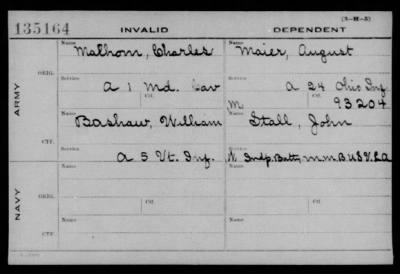 (3-H-3)
135164 INVALID DEPENDENT
Name Name
Malhom, Charles Maier, August
ORIG.
Service Service
A 1 Md. Cav A 24 Ohio Inf.
Ctf. Ctf.
M 93204
ARMY
Name Name
Bashaw, William Stall, John
CTF.
Service Service
A 5 Vt. Inf. Indp. Batt, M.M.B. U S V. L A
Name Name
ORIG.
NAVY
Ctf. Ctf.
Name Name
CTF.